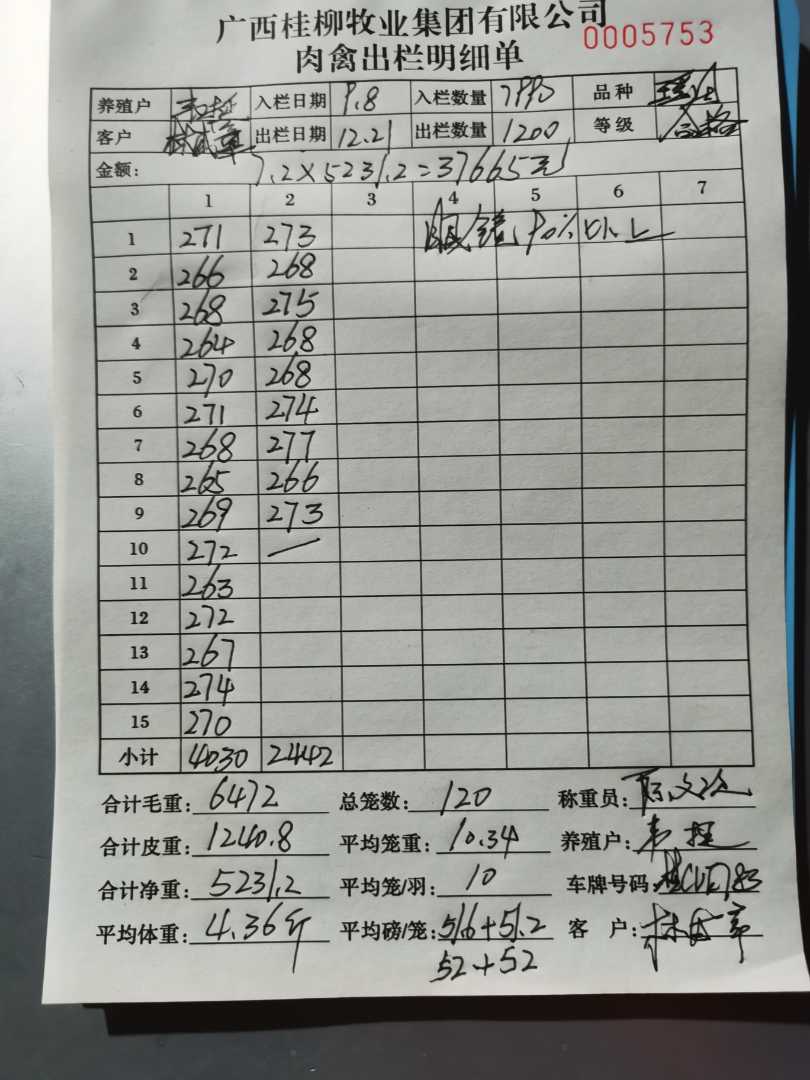 广西桂柳牧业集团有限公司
肉禽出栏明细单 0005753
养殖户 入栏日期 9.8 入栏数量 7990 品种
客户 出栏日期 12.21 出栏数量 1200 等级 合格
金额: 7.2×5231.2=37665元
1 2 3 4 5 6 7
1 271 273 90%以上
2 266 268
3 268 275
4 264 268
5 270 268
6 271 274
7 268 277
8 265 266
9 269 273
10 272 —
11 263
12 272
13 267
14 274
15 270
小计 4030 2442
合计毛重: 6472 总笼数: 120 称重员:
合计皮重: 1240.8 平均笼重: 10.34 养殖户: 韦
合计净重: 5231.2 平均笼/羽: 10 车牌号码:
平均体重: 4.36斤 平均磅/笼: 51.6+51.2 客 户:
52+52